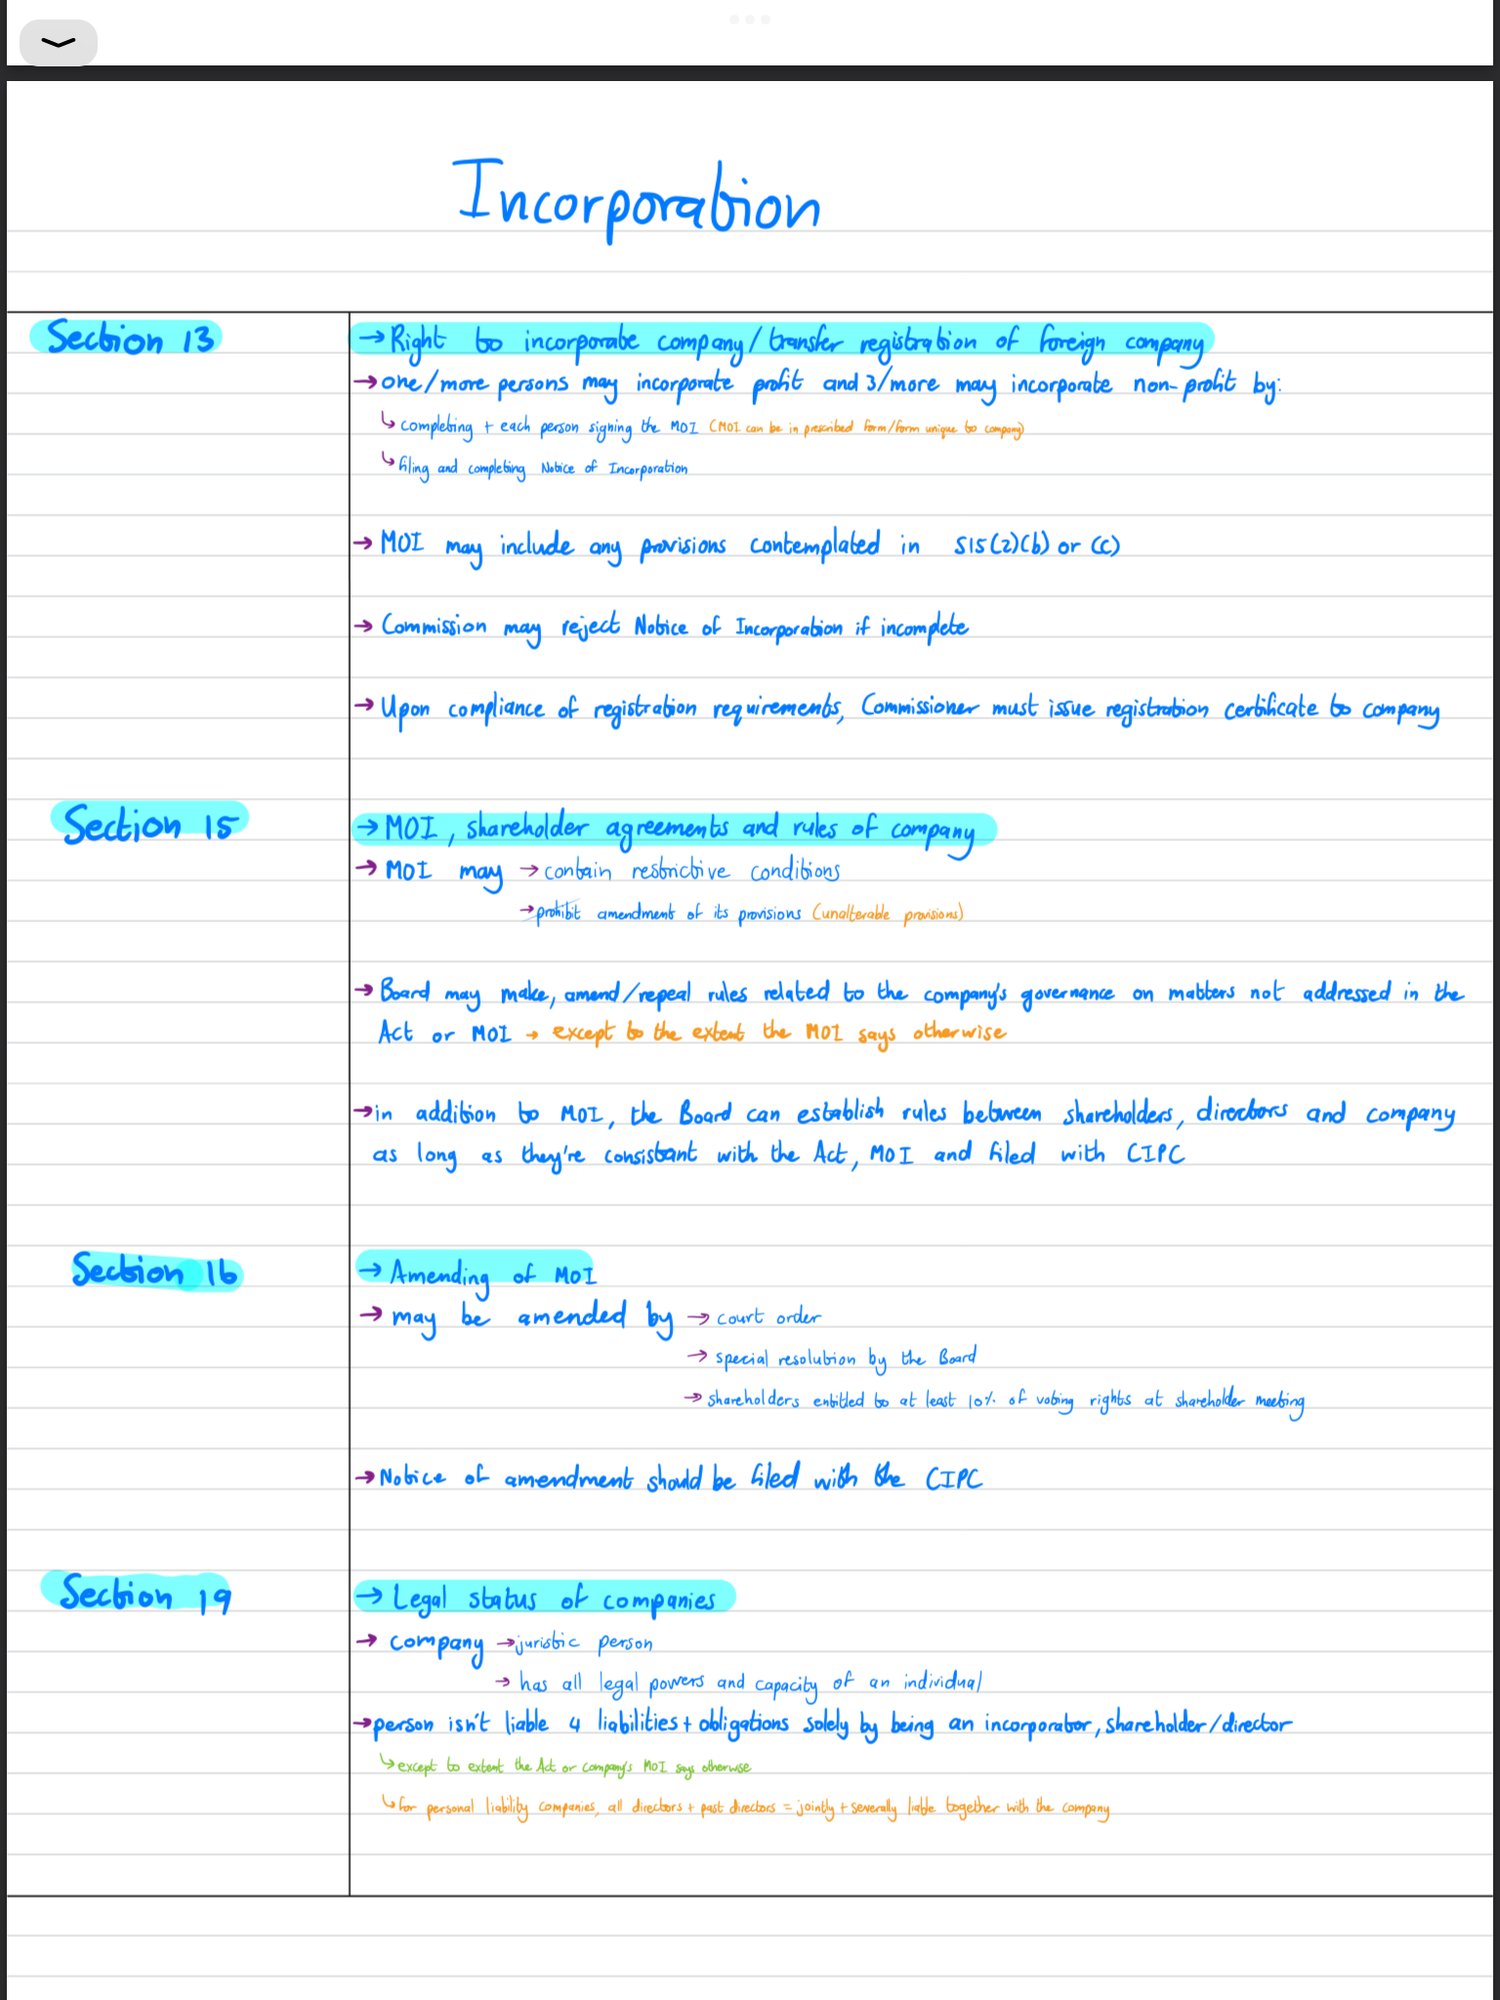 Incorporation
Section 13
→ Right to incorporate company/transfer registration of foreign company
→ one/more persons may incorporate profit and 3/more may incorporate non-profit by:
↳ completing + each person signing the MOI (MOI can be in prescribed form/form unique to company)
↳ filing and completing Notice of Incorporation
→ MOI may include any provisions contemplated in S15(2)(b) or (c)
→ Commission may reject Notice of Incorporation if incomplete
→ Upon compliance of registration requirements, Commissioner must issue registration certificate to company
Section 15
→ MOI, shareholder agreements and rules of company
→ MOI may → contain restrictive conditions
→ prohibit amendment of its provisions (unalterable provisions)
→ Board may make, amend/repeal rules related to the company's governance on matters not addressed in the
Act or MOI → except to the extent the MOI says otherwise
→ in addition to MOI, the Board can establish rules between shareholders, directors and company
as long as they're consistant with the Act, MOI and filed with CIPC
Section 16
→ Amending of MOI
→ may be amended by → court order
→ special resolution by the Board
→ shareholders entitled to at least 10% of voting rights at shareholder meeting
→ Notice of amendment should be filed with the CIPC
Section 19
→ Legal status of companies
→ company → juristic person
→ has all legal powers and capacity of an individual
→ person isn't liable 4 liabilities + obligations solely by being an incorporator, shareholder/director
↳ except to extent the Act or company's MOI says otherwise
↳ for personal liability companies, all directors + past directors = jointly + severally liable together with the company